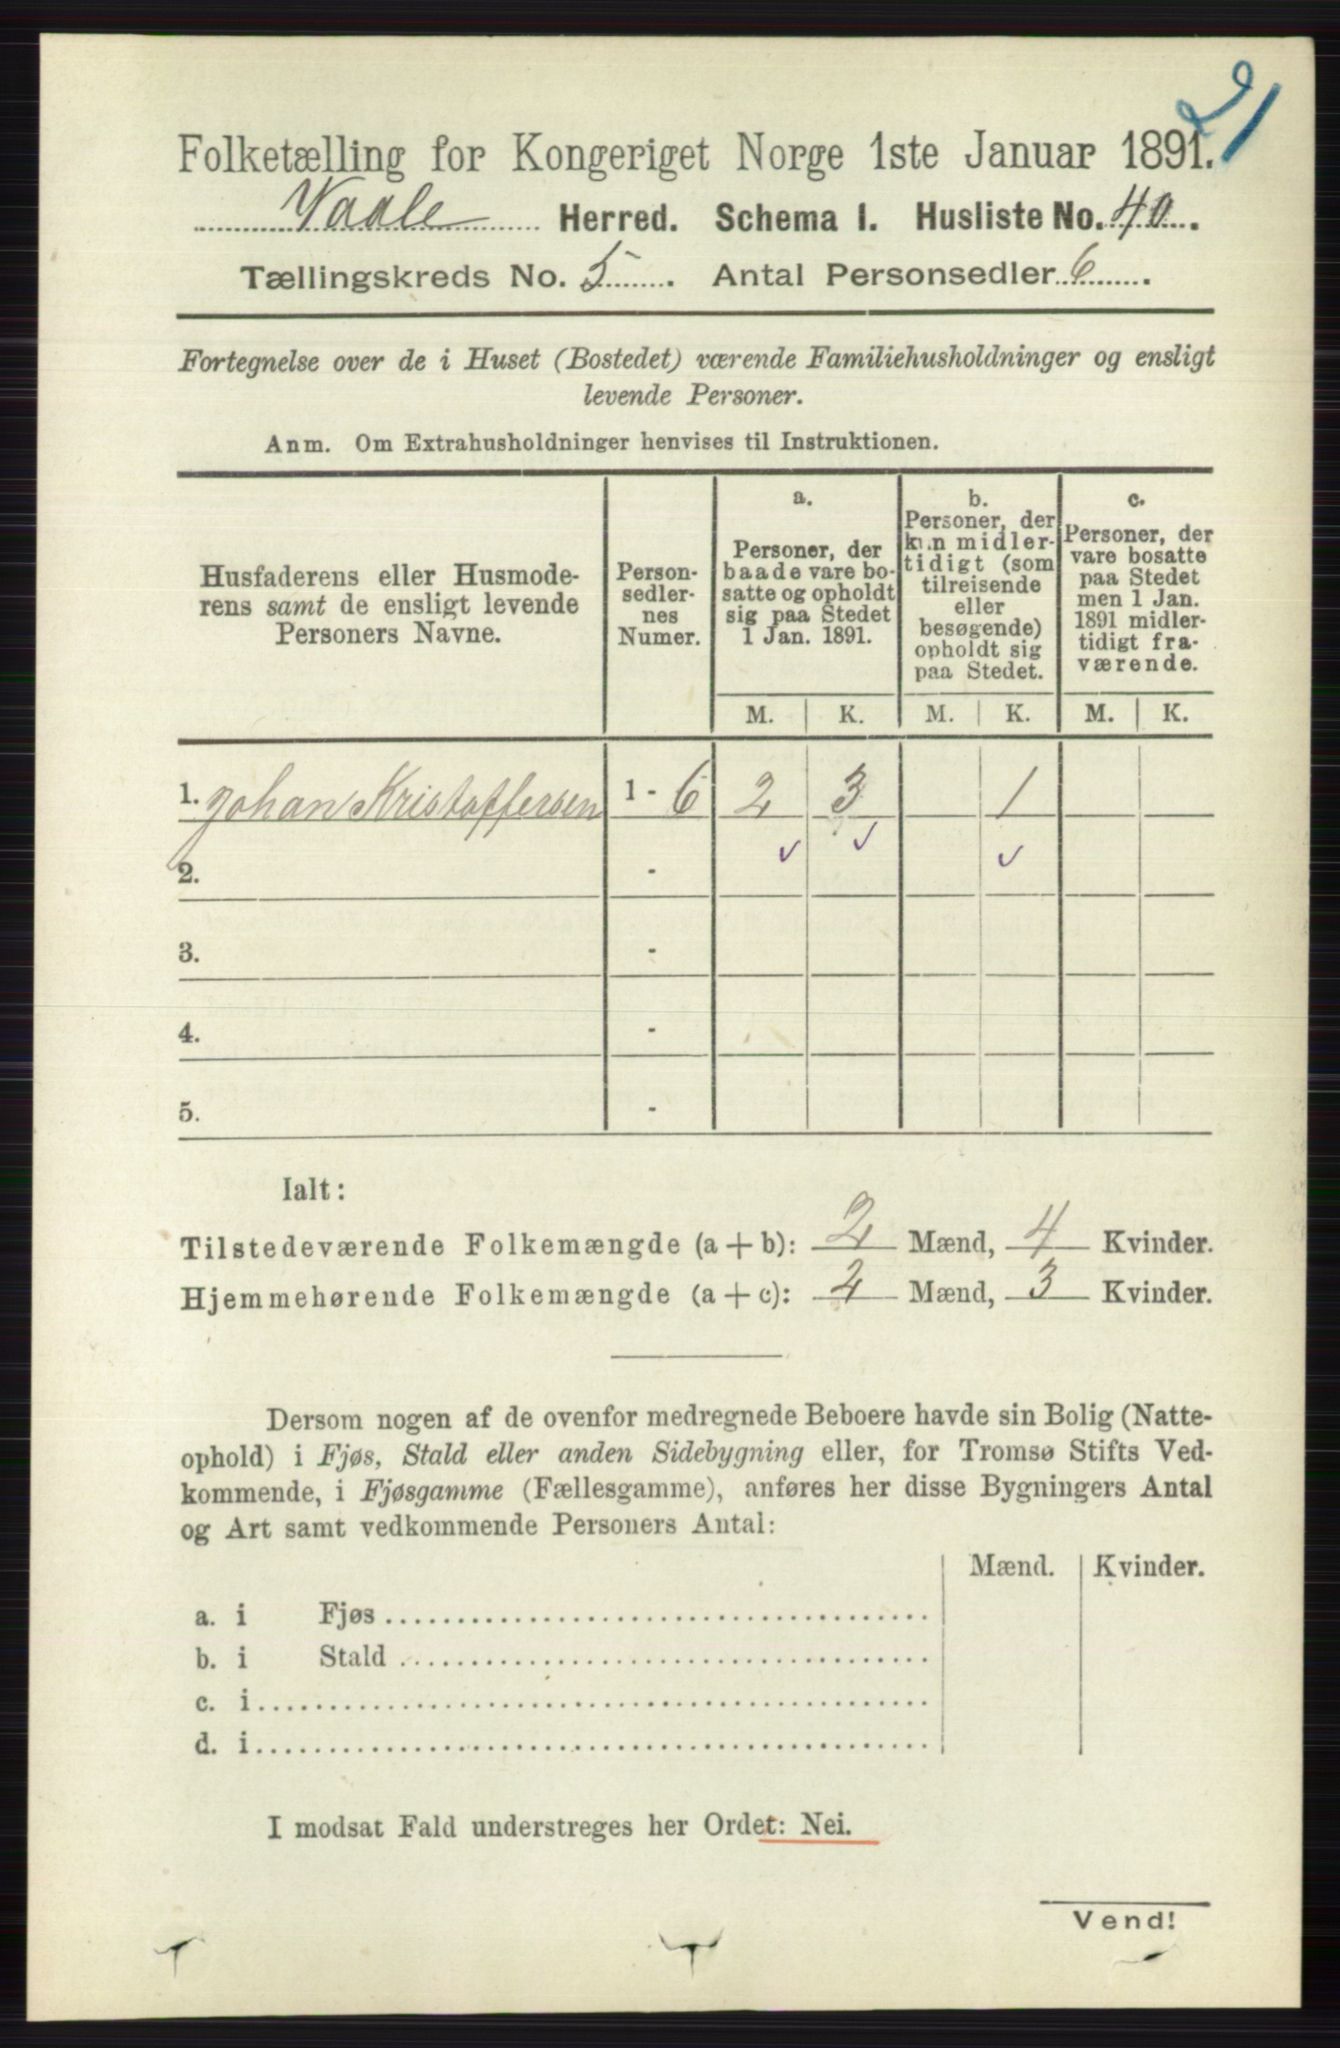 21
Folketælling for Kongeriget Norge 1ste Januar 1891.
Vaale Herred. Schema I. Husliste No. 40.
Tællingskreds No. 5. Antal Personsedler 6.
Fortegnelse over de i Huset (Bostedet) værende Familiehusholdninger og ensligt
levende Personer.
Anm. Om Extrahusholdninger henvises til Instruktionen.
Husfaderens eller Husmode-
rens samt de ensligt levende
Personers Navne.
Person-
sedler-
nes
Numer.
a.
Personer, der
baade vare bo-
satte og opholdt
sig paa Stedet
1 Jan. 1891.
b.
Personer, der
kun midler-
tidigt (som
tilreisende
eller
besøgende)
opholdt sig
paa Stedet.
c.
Personer, der
vare bosatte
paa Stedet
men 1 Jan.
1891 midler-
tidigt fra-
værende.
M. K. M. K. M. K.
1. Johan Kristoffersen 1 - 6 2 3 1
✓ ✓ ✓
2. -
3. -
4. -
5. -
Ialt:
Tilstedeværende Folkemængde (a + b): 2 Mænd, 4 Kvinder.
Hjemmehørende Folkemængde (a + c): 2 Mænd, 3 Kvinder.
Dersom nogen af de ovenfor medregnede Beboere havde sin Bolig (Natte-
ophold) i Fjøs, Stald eller anden Sidebygning eller, for Tromsø Stifts Ved-
kommende, i Fjøsgamme (Fællesgamme), anføres her disse Bygningers Antal
og Art samt vedkommende Personers Antal:
Mænd. Kvinder.
a. i Fjøs
b. i Stald
c. i
d. i
I modsat Fald understreges her Ordet: Nei.
Vend!